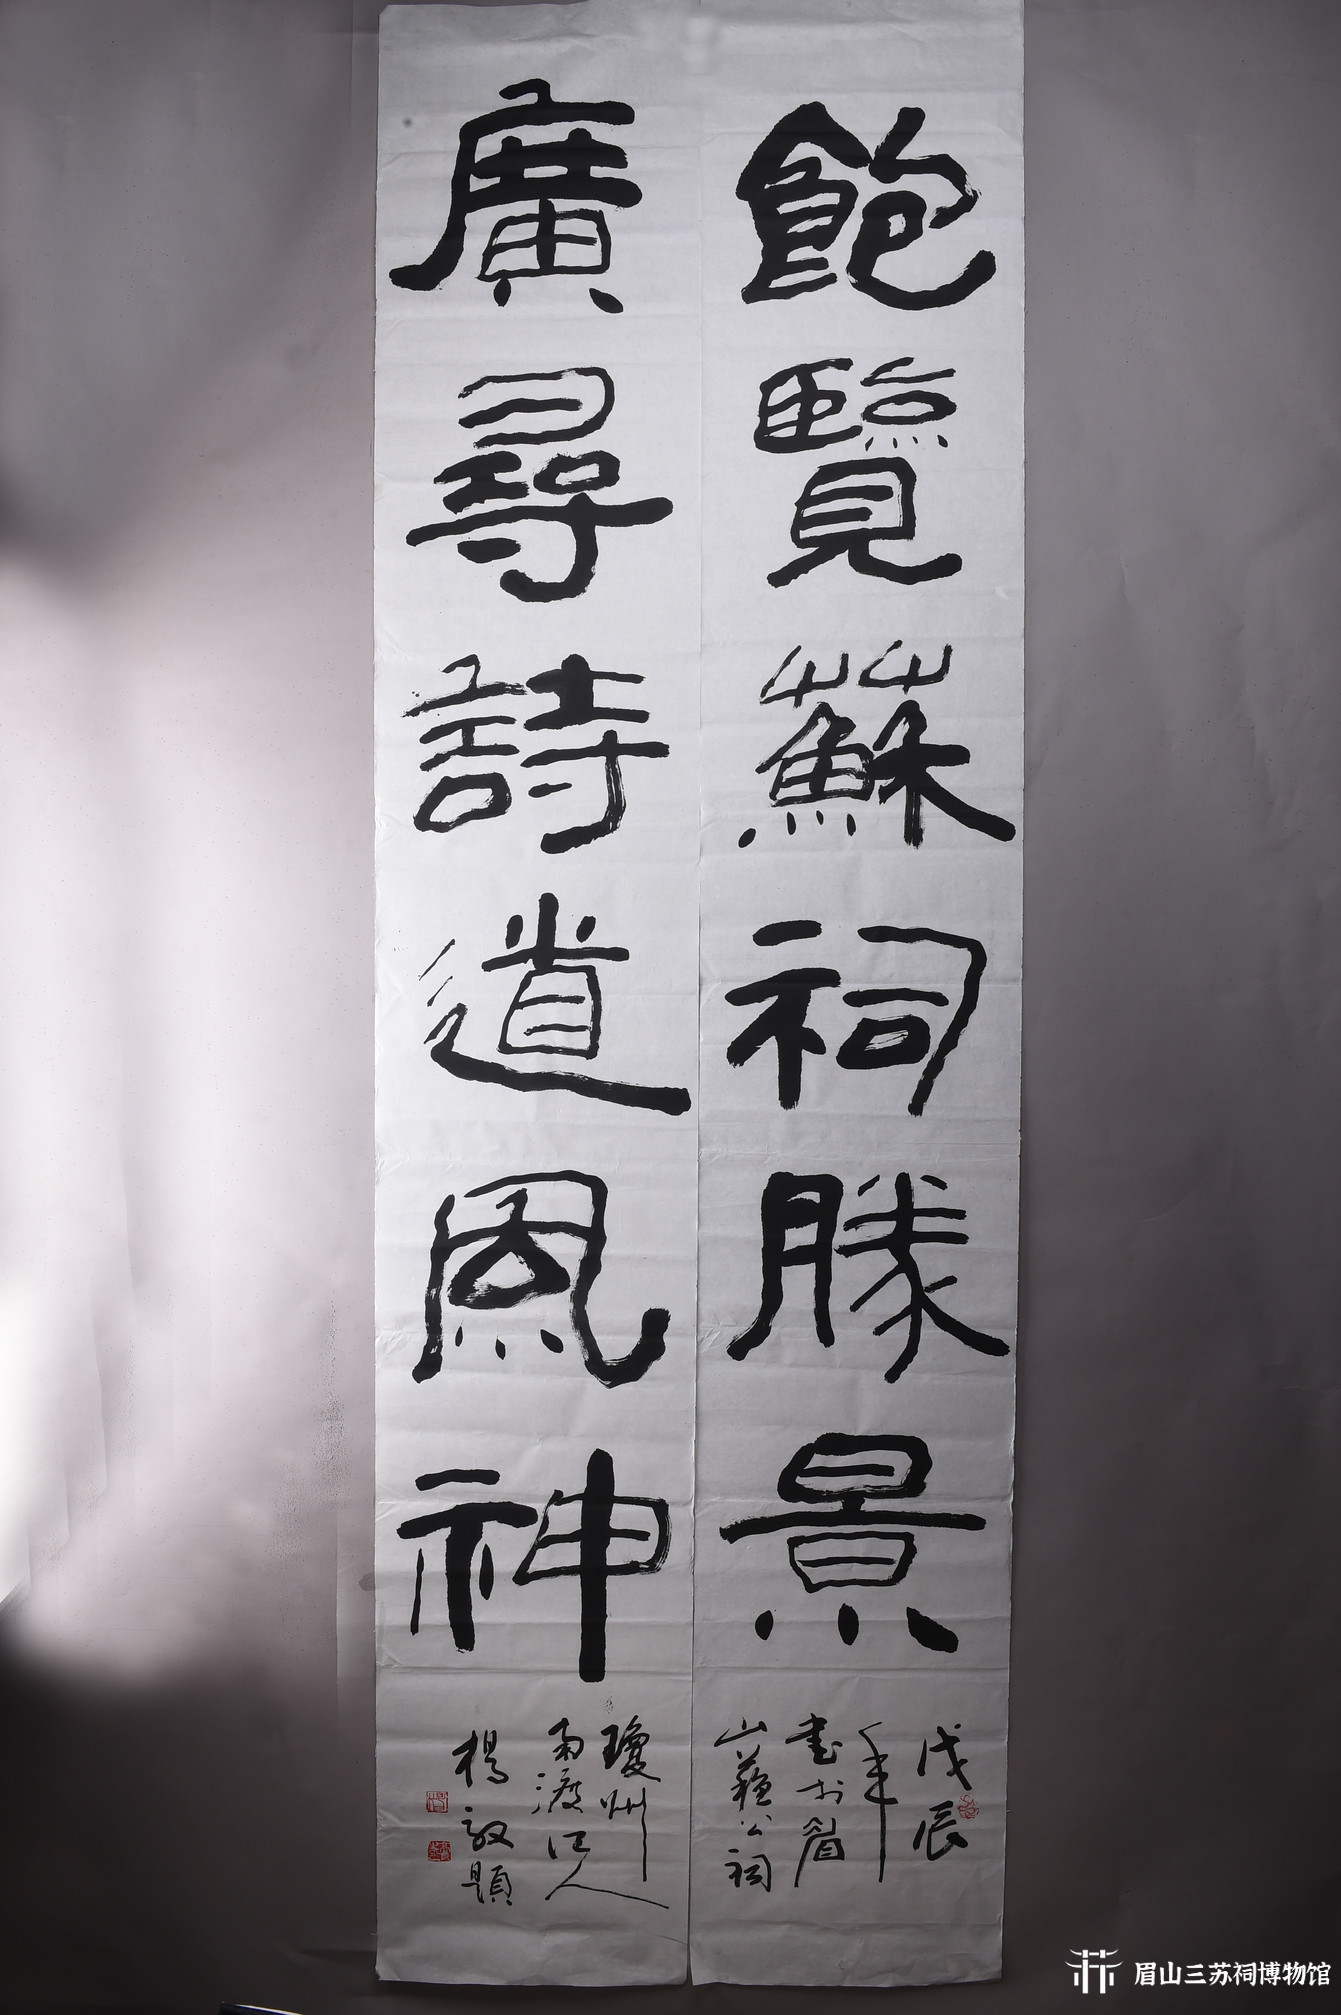 飽覽蘇祠勝景
戊辰
年
書於眉
山蘇公祠
廣尋詩遺風神
瓊州
南渡江人
楊毅題
眉山三苏祠博物馆